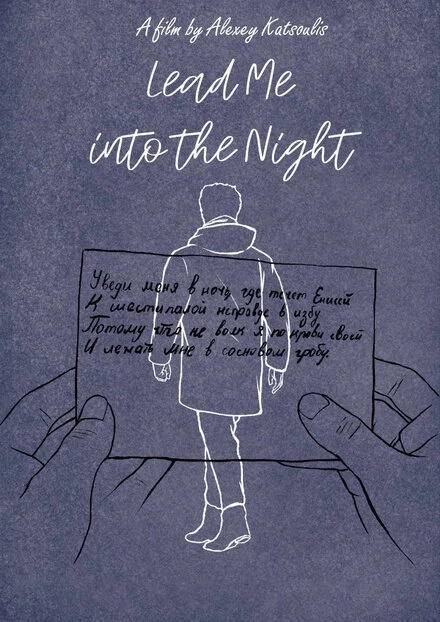 A film by Alexey Katsoulis
Lead Me
into the Night
Уведи меня в ночь, где течёт Енисей
К шестипалой неправде в избу
Потому что не волк я по крови своей
И лежать мне в сосновом гробу.